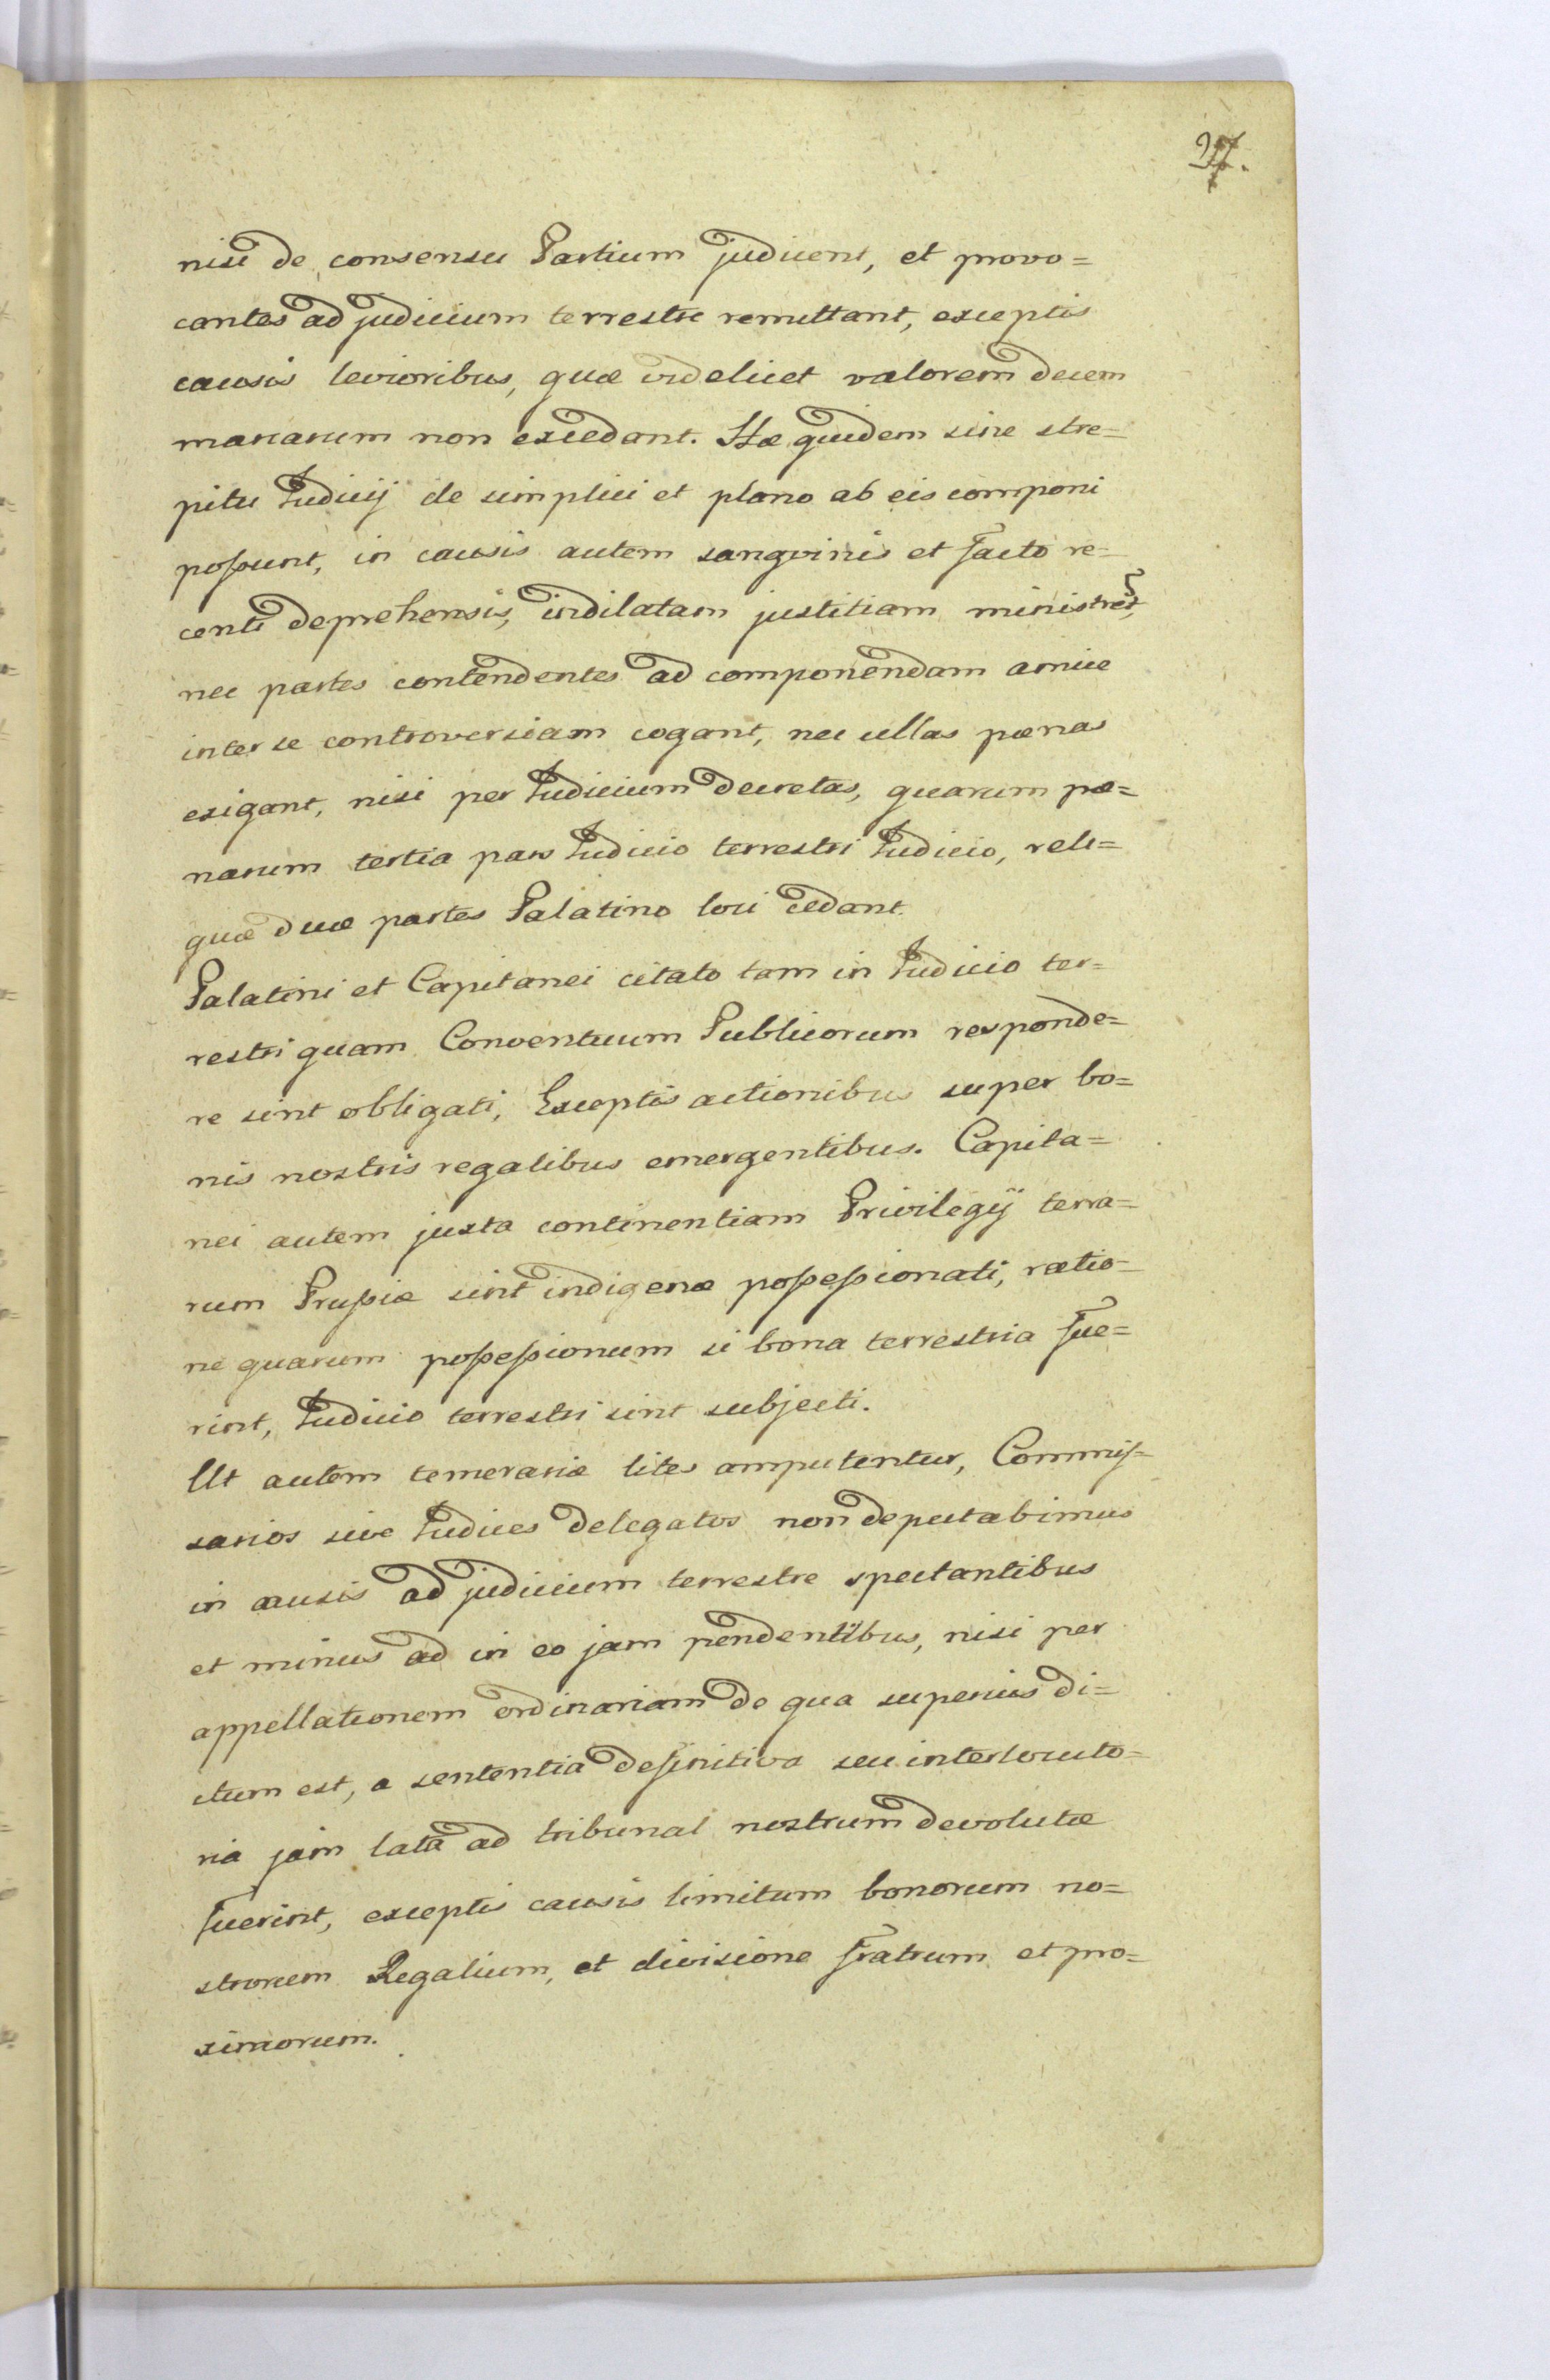 27.
nisi de consensu Partium judicent, et provo=
cantes ad judicium terrestre remittant, exceptis
causis levioribus, quæ videlicet valorem decem
marcarum non excedant. Hæ quidem sine stre=
pitu Iudicij de simplici et plano ab eis componi
possunt, in causis autem sangvinis et facto re=
centi deprehensis, indilatam justitiam ministrēt,
nec partes contendentes ad componendam amice
inter se controversiam cogant, nec ullas pœnas
exigant, nisi per Iudicium decretas, quarum pœ=
narum tertia pars Iudicio terrestri Iudicio, reli=
quæ duæ partes Palatino loci cedant.
Palatini et Capitanei citato tam in Iudicio ter=
restri quam Conventuum Publicorum responde=
re sint obligati, Exceptis actionibus super bo=
nis nostris regalibus emergentibus. Capita=
nei autem juxta continentiam Privilegij terra=
rum Prussiæ sint indigenæ possessionati, ratio=
ne quarum possessionum si bona terrestria fue=
rint, Iudicio terrestri sint subjecti.
Ut autem temerariæ lites amputentur, Commis=
sarios sive Iudices delegatos non deputabimus
in causis ad judicium terrestre spectantibus
et minus ad in eo jam pendentibus, nisi per
appellationem ordinariam de qua superius di=
ctum est, a sententia definitiva seu interlocuto=
ria jam lata ad tribunal nostrum devolutæ
fuerint, exceptis causis limitum bonorum no=
strorum Regalium, et divisione fratrum et pro=
ximorum.